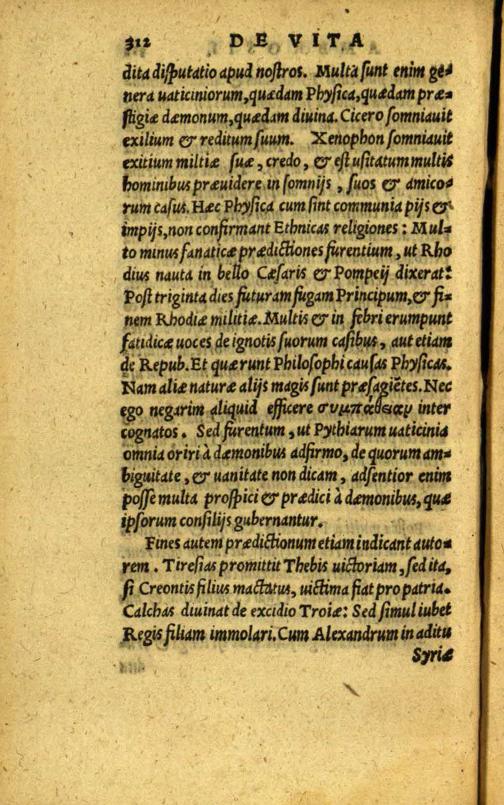 312 DE VITA
dita disputatio apud nostros. Multa sunt enim ge-
nera uaticiniorum, quædam Physica, quædam præ-
stigiæ dæmonum, quædam diuina. Cicero somniauit
exilium & reditum suum. Xenophon somniauit
exitium miltiæ suæ, credo, & est usitatum multis
hominibus præuidere in somnijs, suos & amico-
rum casus. Hæc Physica cum sint communia pijs &
impijs, non confirmant Ethnicas religiones: Mul-
to minus fanaticæ prædictiones furentium, ut Rho
dius nauta in bello Cæsaris & Pompeij dixerat:
Post triginta dies futuram fugam Principum, & fi-
nem Rhodiæ militiæ. Multis & in febri erumpunt
fatidicæ uoces de ignotis suorum casibus, aut etiam
de Repub. Et quærunt Philosophi causas Physicas.
Nam aliæ naturæ alijs magis sunt præsagiẽtes. Nec
ego negarim aliquid efficere συμπάθειαν inter
cognatos. Sed furentum, ut Pythiarum uaticinia
omnia oriri à dæmonibus adfirmo, de quorum am-
biguitate, & uanitate non dicam, adsentior enim
posse multa prospici & prædici à dæmonibus, quæ
ipsorum consilijs gubernantur.
Fines autem prædictionum etiam indicant auto-
rem. Tiresias promittit Thebis uictoriam, sed ita,
si Creontis filius mactatus, uictima fiat pro patria.
Calchas diuinat de excidio Troiæ: Sed simul iubet
Regis filiam immolari. Cum Alexandrum in aditu
Syriæ